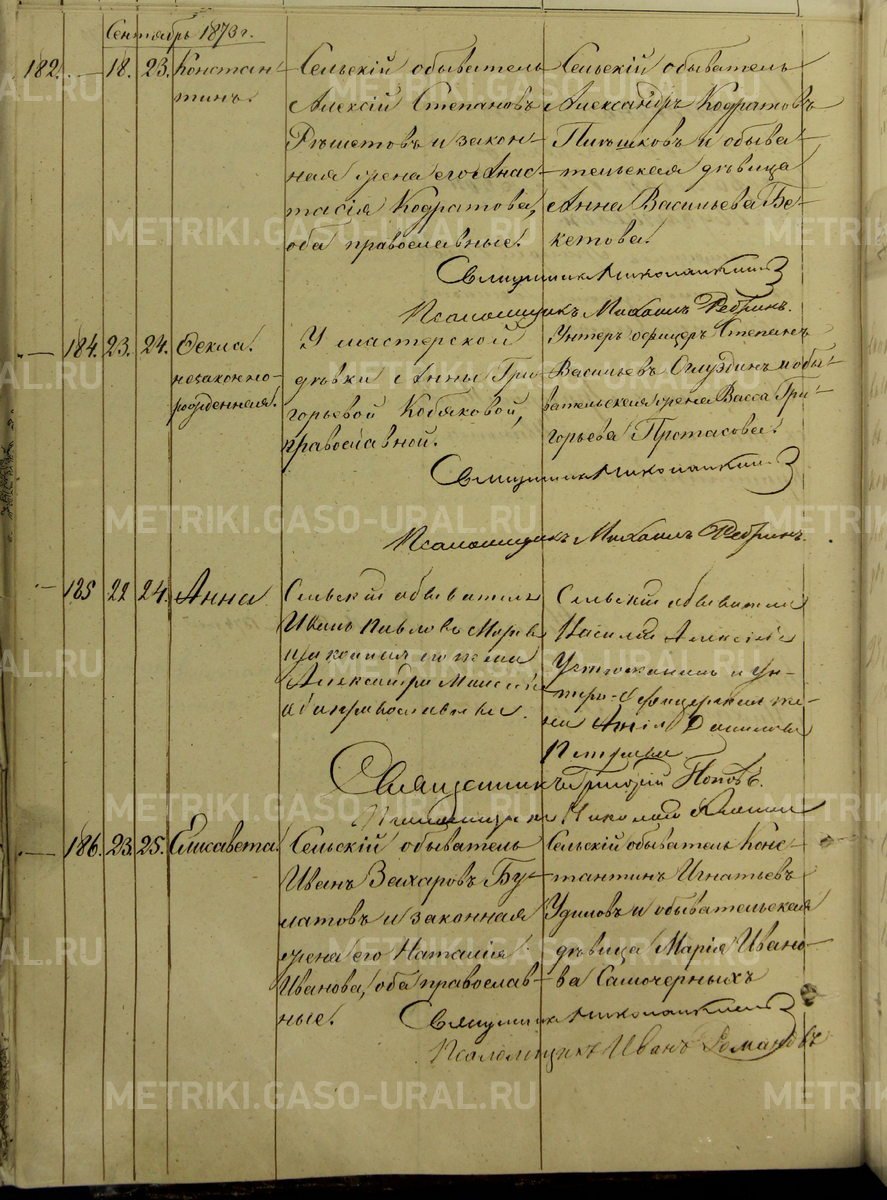 Сентябрь 1873 г.
182. 18. 23. Констан-
тинъ.
Сельскій обыватель
Алексій Степановъ
Рѣшетовъ и закон-
ная жена его Анас-
тасія Кодратова,
оба православные.
Сельскій обыватель
Александръ Кодратовъ
Пѣтешковъ и обыва-
тельская дѣвица
Анна Васильева Бе-
кетова.
Священникъ
Псаломщикъ Михаилъ Ребринъ.
184. 23. 24. Ѳекла.
незаконно-
рожденная.
У мастерской
дѣвки Анны Гри-
горьевой Кобяковой,
православной.
Унтеръ офицеръ Степанъ
Васильевъ и обы-
вательская жена Васса Гри-
горьева Протасова.
Священникъ
Псаломщикъ Михаилъ Ребринъ.
185 22 24. Анна
Сельскій обыватель
Иванъ Павловъ
и законная его жена
Александра
оба православные.
Сельскій обыватель
Василій Алексѣевъ
и ун-
теръ-офицерская же-
на Данилова
Петрова
Священникъ Григорій Поповъ.
Псаломщикъ Николай
186. 23. 25. Елисавета.
Сельскій обыватель
Иванъ Захаровъ Бу-
латовъ и законная
жена его Наталія
Иванова, оба православ-
ные.
Сельскій обыватель Конс-
тантинъ Игнатьевъ
Удиловъ и обывательская
дѣвица Марія Ивано-
ва Самочерныхъ
Священникъ
Псаломщикъ Иванъ Романовъ
METRIKI.GASO-URAL.RU